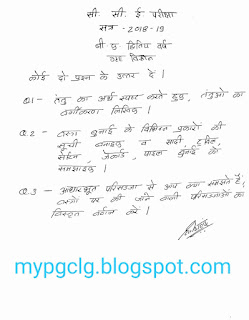 सी. सी. ई परीक्षा
सत्र - 2018-19
बी ए द्वितीय वर्ष
गृह विज्ञान
कोई दो प्रश्न के उत्तर दें।
Q1 - तंतु का अर्थ स्पष्ट करते हुए, तंतुओं का
वर्गीकरण लिखिए।
Q2 - वस्त्र बुनाई के विभिन्न प्रकारों की
सूची बनाइए व सादी, ट्वील,
सेटिन, जेकार्ड, पाइल बुनाई को
समझाइए।
Q3 - आधारभूत परिसज्जा से आप क्या समझते हैं,
वस्त्रों पर की जाने वाली परिसज्जाओं का
विस्तृत वर्णन करें।
mypgclg.blogspot.com